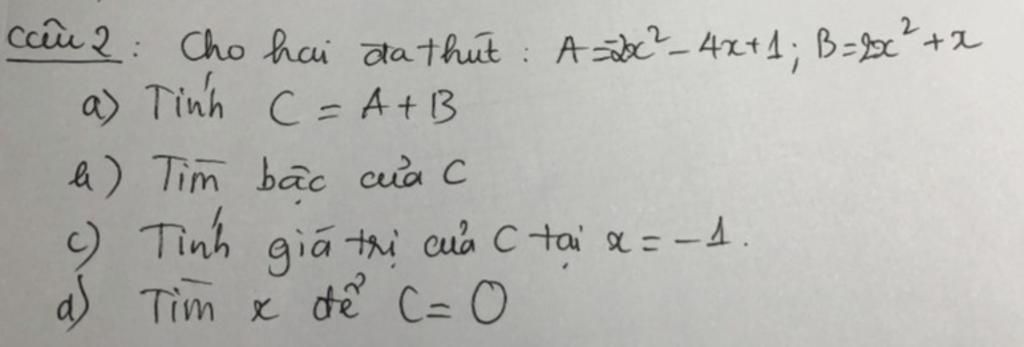 Câu 2: Cho hai đa thức: A=-2x²-4x+1; B=2x²+x
a) Tính C = A+B
b) Tìm bậc của C
c) Tính giá trị của C tại x = -1.
d) Tìm x để C = 0